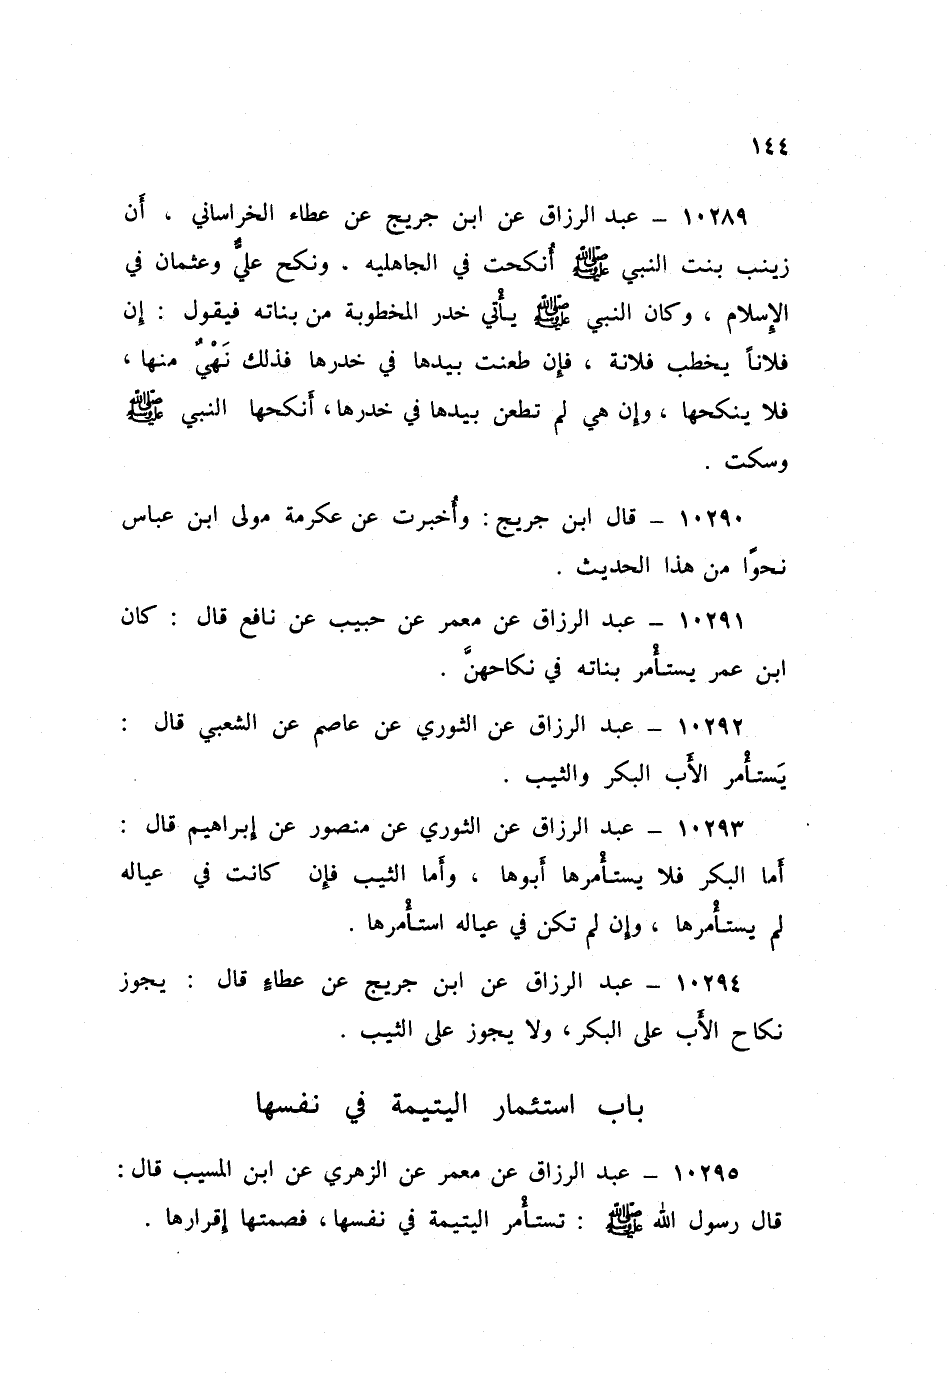 ١٤٤
١٠٢٨٩ – عبد الرزاق عن ابن جريج عن عطاء الخراساني ، أَن
زينب بنت النبي ﷺ أُنكحت في الجاهليه . ونكح عليٌّ وعثمان في
الإِسلام ، وكان النبي ﷺ يأْتي خدر المخطوبة من بناته فيقول : إِن
فلاناً يخطب فلانة ، فإِن طعنت بيدها في خدرها فذلك نَهْيٌ منها ،
فلا ينكحها ، وإِن هي لم تطعن بيدها في خدرها، أَنكحها النبي ﷺ
وسكت .
١٠٢٩٠ – قال ابن جريج : وأُخبرت عن عكرمة مولى ابن عباس
نحوًا من هذا الحديث .
١٠٢٩١ – عبد الرزاق عن معمر عن حبيب عن نافع قال : كان
ابن عمر يستأْمر بناته في نكاحهنَّ .
١٠٢٩٢ – عبد الرزاق عن الثوري عن عاصم عن الشعبي قال :
يَستأْمر الأَب البكر والثيب .
١٠٢٩٣ – عبد الرزاق عن الثوري عن منصور عن إِبراهيم قال :
أَما البكر فلا يستأْمرها أَبوها ، وأَما الثيب فإِن كانت في عياله
لم يستأْمرها ، وإِن لم تكن في عياله استأْمرها .
١٠٢٩٤ – عبد الرزاق عن ابن جريج عن عطاءٍ قال : يجوز
نكاح الأَب على البكر، ولا يجوز على الثيب .
باب استئمار اليتيمة في نفسها
١٠٢٩٥ – عبد الرزاق عن معمر عن الزهري عن ابن المسيب قال :
قال رسول الله ﷺ : تستأْمر اليتيمة في نفسها، فصمتها إِقرارها .